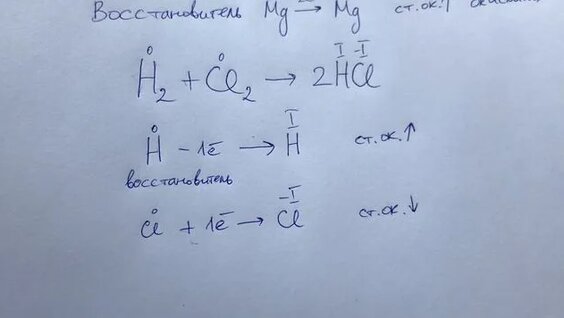 Восстановитель Mg → Mg ст.ок.↑
0 0 I -I
H₂ + Cl₂ → 2HCl
0 I
H − 1ē → H ст.ок.↑
восстановитель
0 -I
Cl + 1ē → Cl ст.ок.↓